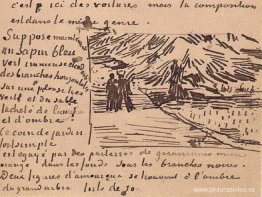 c'est ici des voilures mais la composition
est dans le même genre.
Suppose maintenant
un sapin bleu
vert immense
des branches horizontales
sur une pelouse très
verte et du sable
taché de lumière
et d'ombre
le coin de jardin
fort simple
est égayé par des parterres de géraniums mine
orange dans les fonds sous les branches noires.
Deux figures d'amoureux se trouvent à l'ombre
du grand arbre toile de 30.
www.pinturasoleos.es